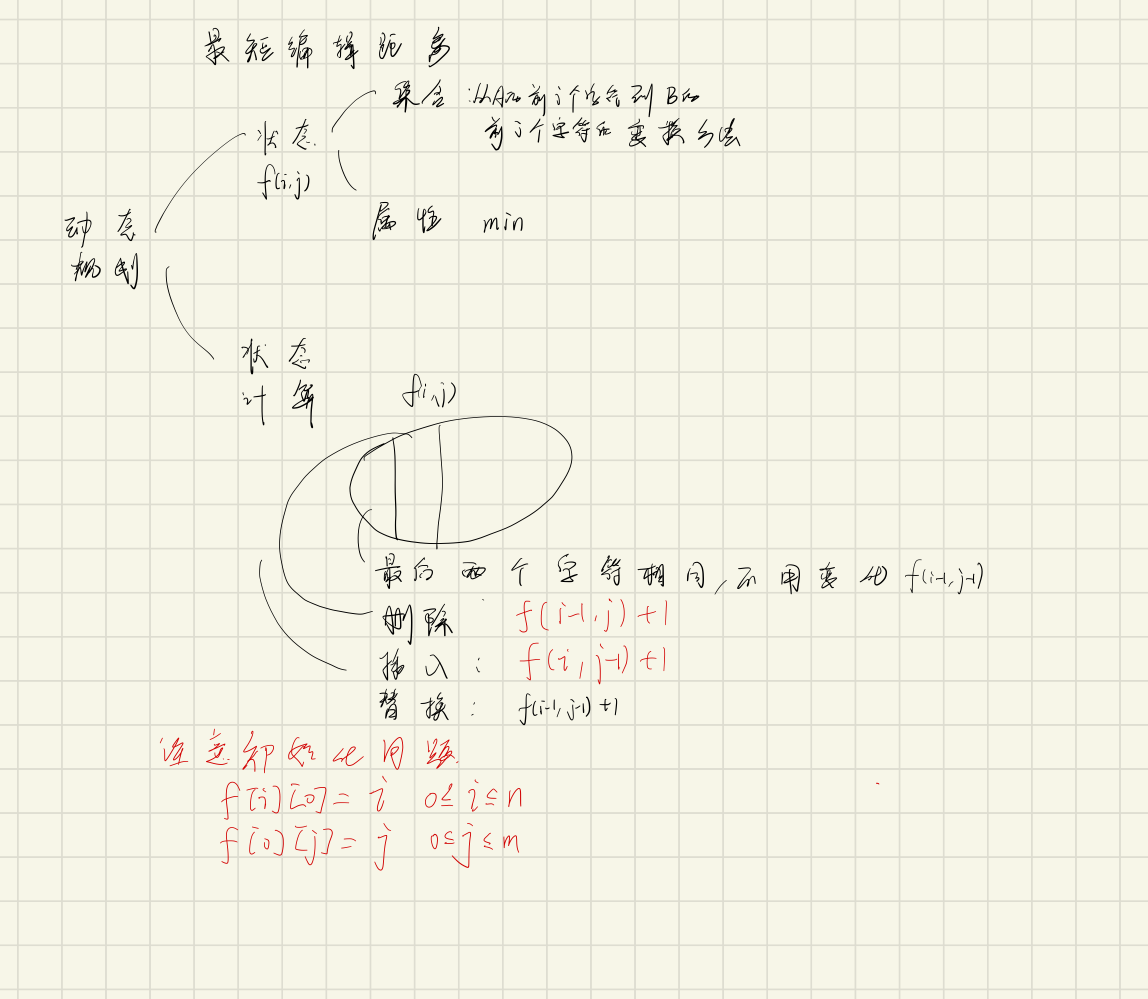 最短编辑距离
集合:从A的前i个字符到B的
前j个字符的变换方法
状态
f(i,j)
属性 min
动态
规划
状态
计算
f(i,j)
最后两个字符相同,不用变化 f(i-1,j-1)
删除: f(i-1,j)+1
插入: f(i,j-1)+1
替换: f(i-1,j-1)+1
注意初始化问题
f[i][0]= i 0≤i≤n
f[0][j]= j 0≤j≤m